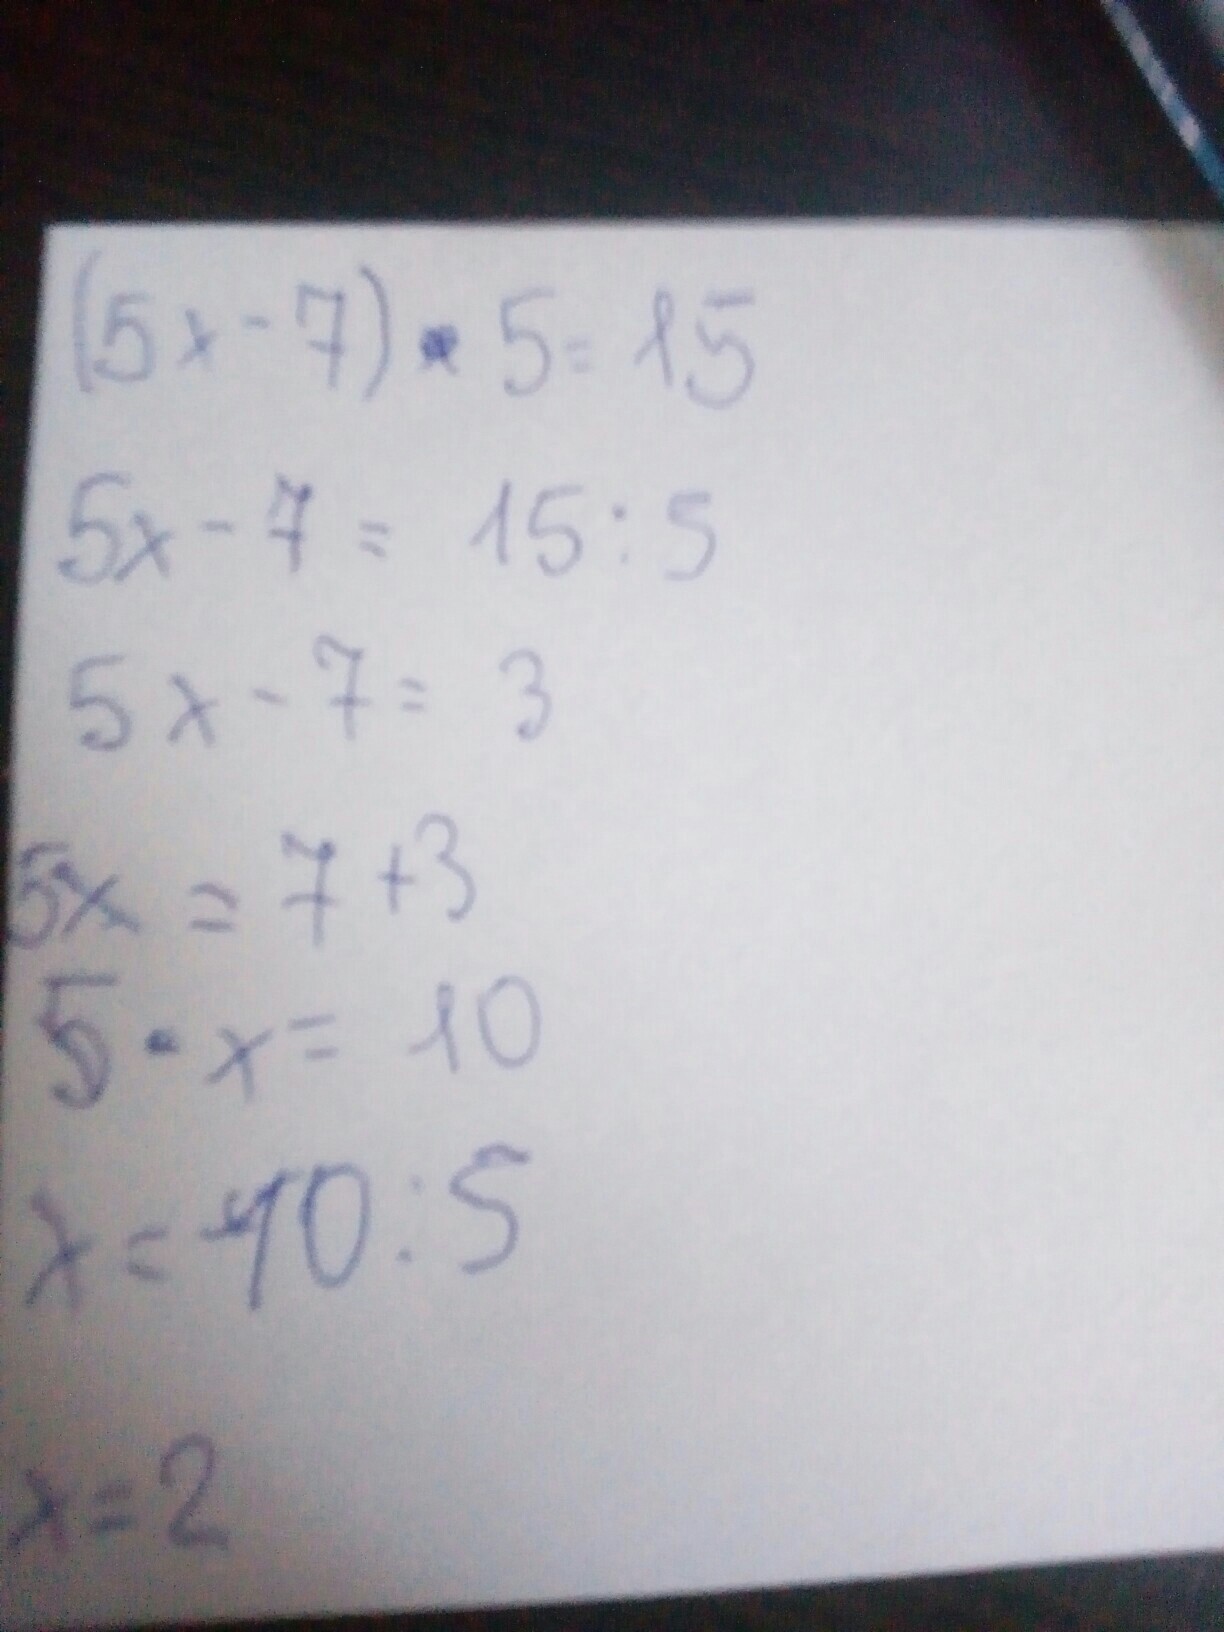 (5x - 7) • 5 = 15
5x - 7 = 15 : 5
5x - 7 = 3
5x = 7 + 3
5 • x = 10
x = 10 : 5
x = 2